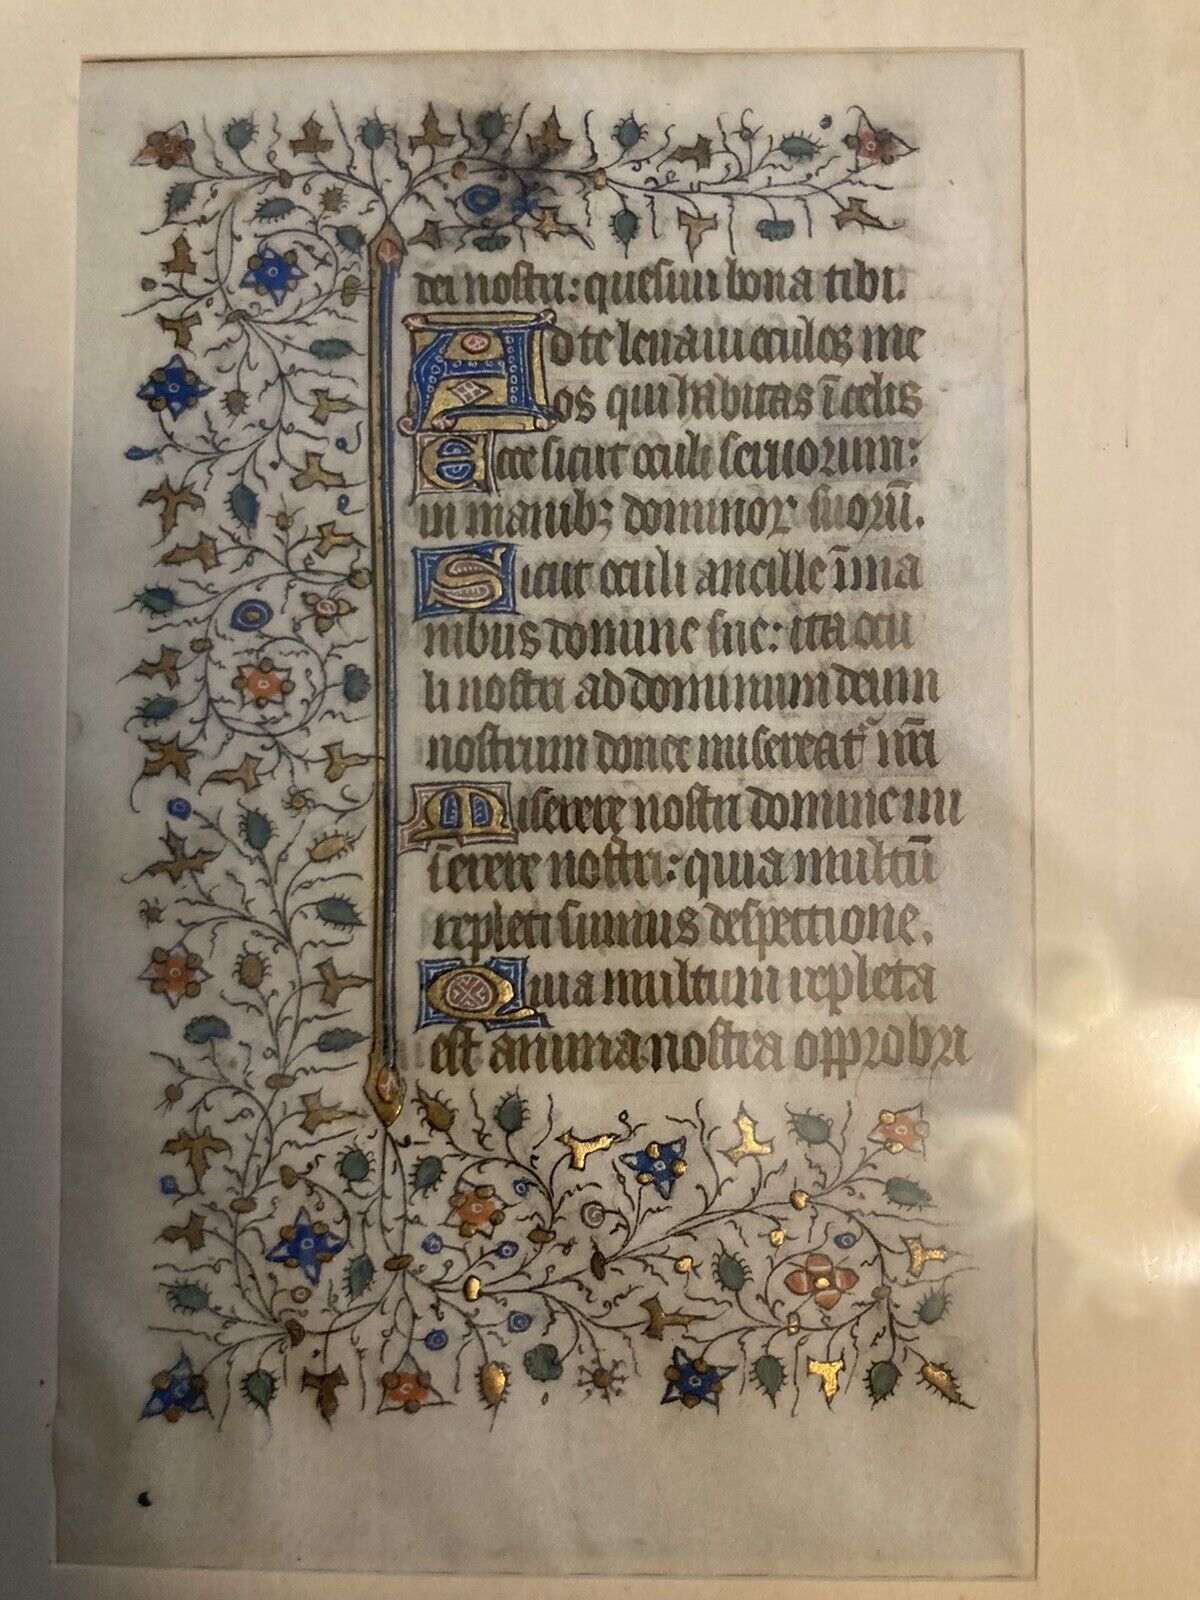 dei nostri: quesiui bona tibi.
Ad te leuaui oculos me
os qui habitas ī celis
Ecce sicut oculi seruorum:
in manibꝫ dominoꝝ suorū.
Sicut oculi ancille ī ma
nibus domine sue: ita ocu
li nostri ad dominum deum
nostrum donec misereat᷑ nr̄i
Miserere nostri domine mi
serere nostri: quia multū
repleti sumus despectione.
Quia multum repleta
est anima nostra opprobri